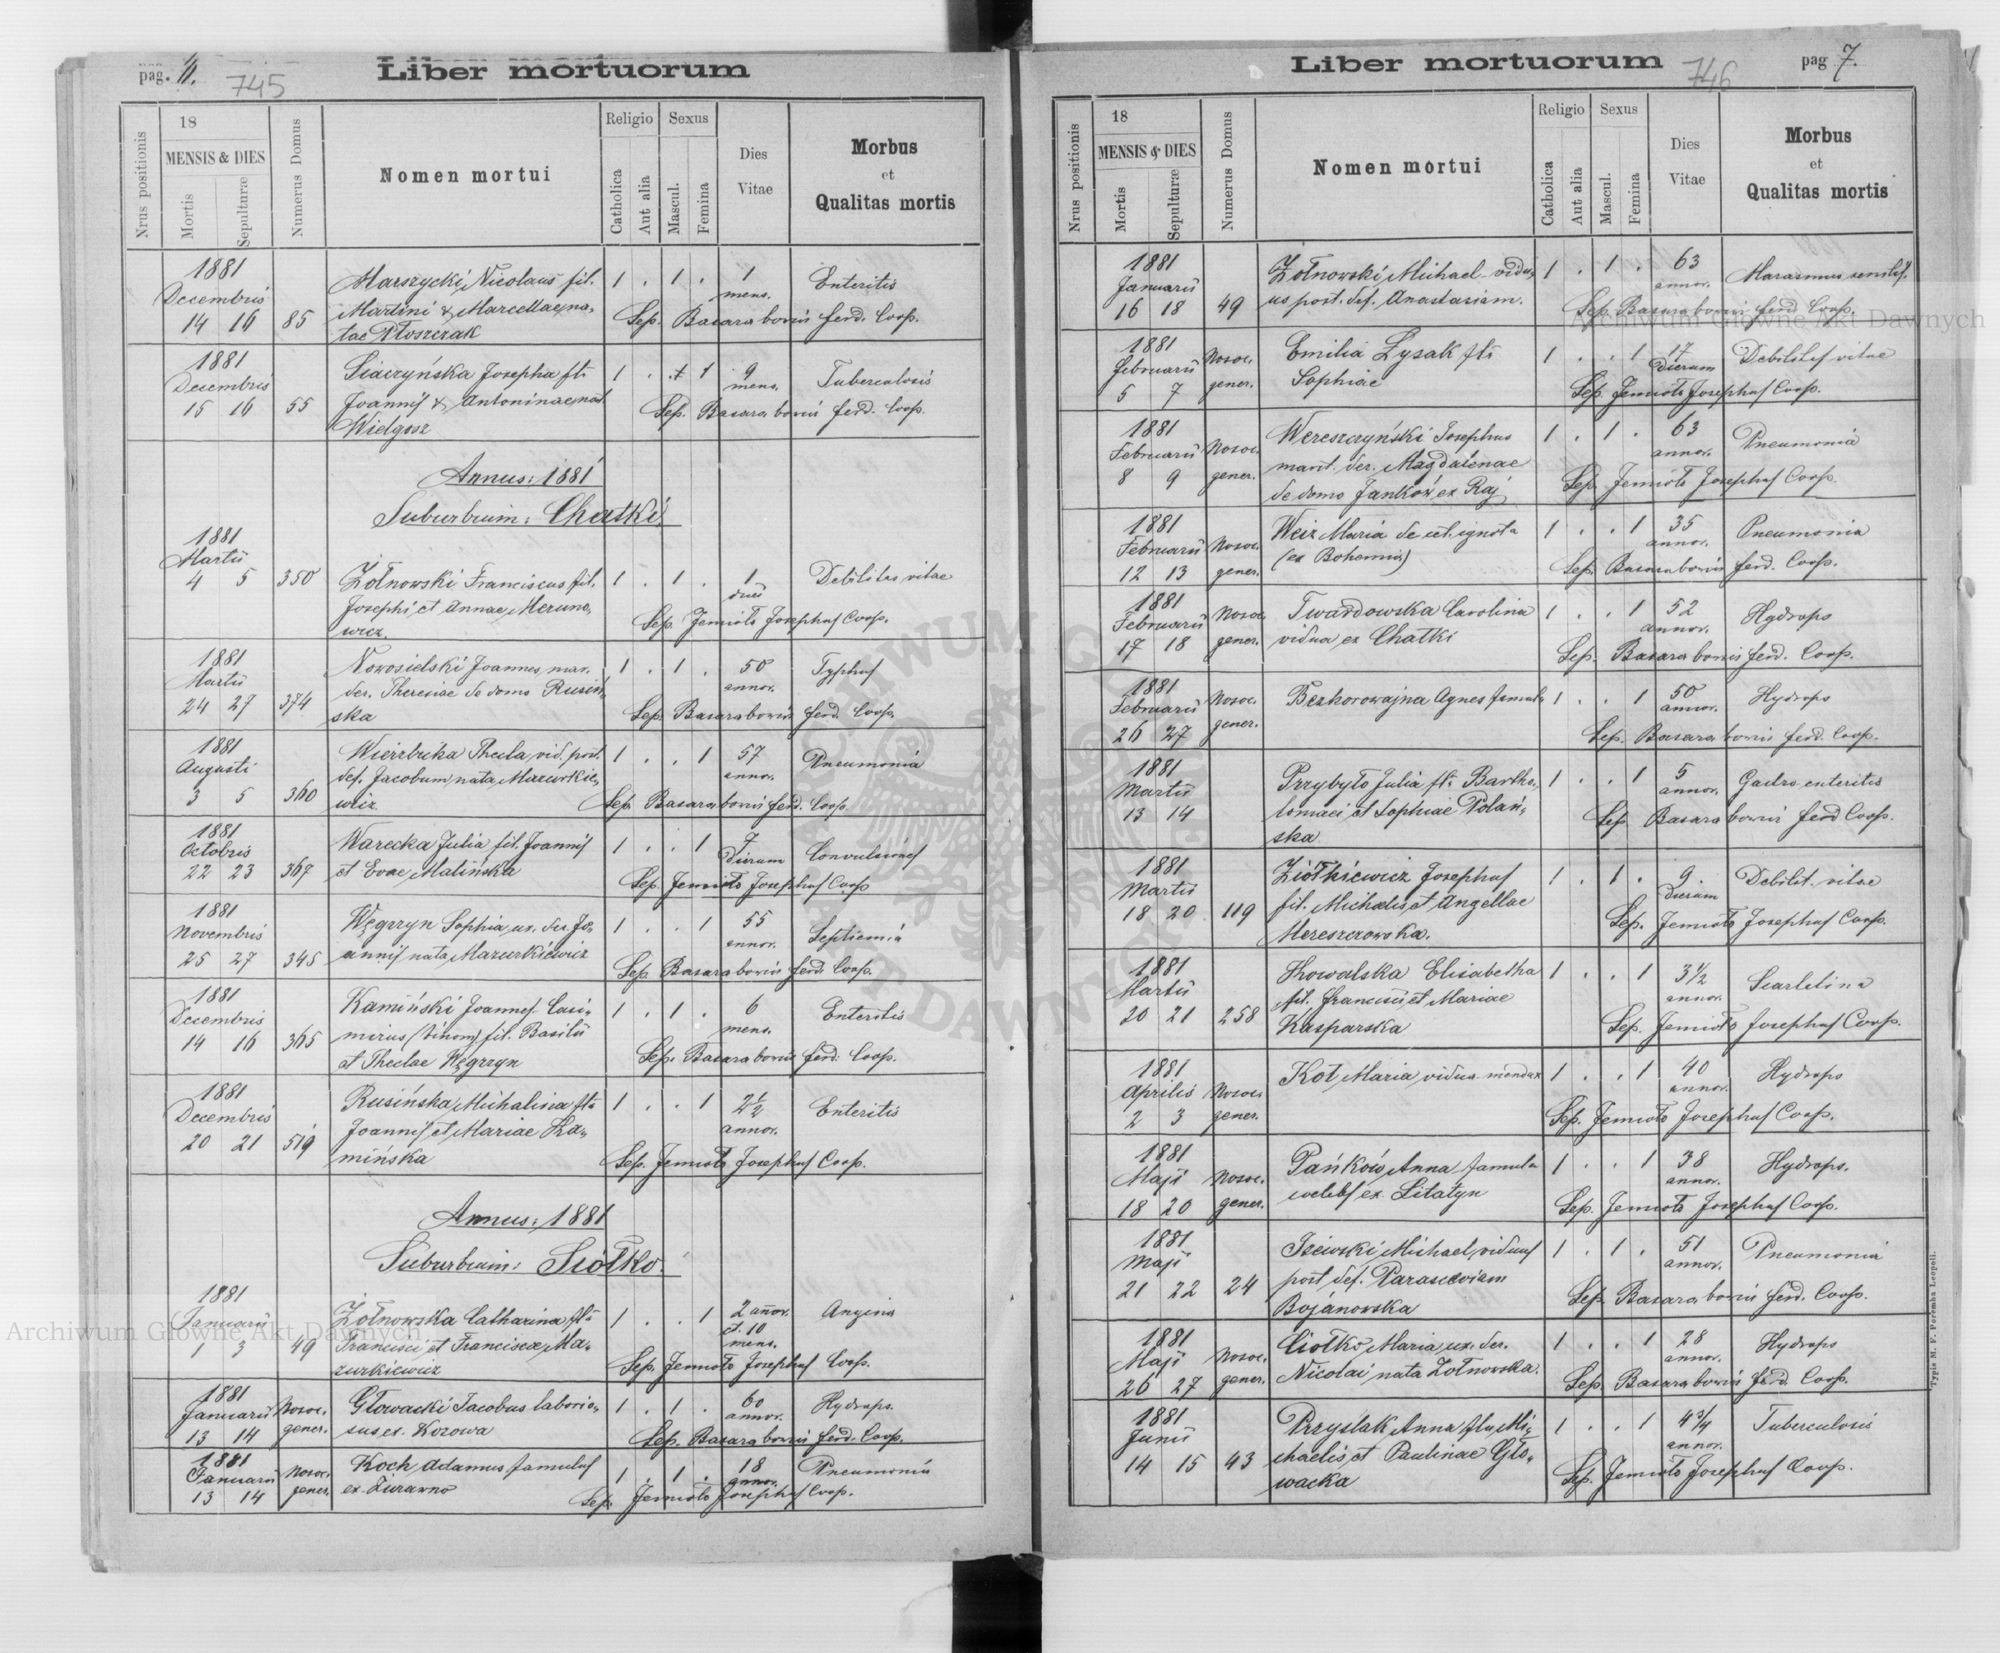 pag. 11.
745
Liber mortuorum
Nrus positionis
18
MENSIS & DIES
Mortis
Sepulturæ
Numerus Domus
Nomen mortui
Religio
Catholica
Aut alia
Sexus
Mascul.
Femina
Dies
Vitae
Morbus
et
Qualitas mortis
1881
Decembris
14 16 85
Marszycki Nicolaus fil.
Martini & Marcellae na-
tae
1 . 1 . 1 mens. Enteritis
Sep. Basarabowicz ferd. Coop.
1881
Decembris
15 16 55
Siaczyńska Josepha fla
Joannis & Antoninae nat.
Wielgosz
1 . . 1 9 mens. Tuberculosis
Sep. Basarabowicz ferd. Coop.
Annus: 1881
Suburbium: Chatki.
1881
Martii
4 5 350
Żołnowski Franciscus fil.
Josephi et Annae Meruno-
wicz.
1 . 1 . 1 diei Debilitas vitae
Sep. Jemioło Josephus Coop.
1881
Martii
24 27 374
Nowosielski Joannes mar.
der. Theresiae de domo Rusiń-
ska
1 . 1 . 50 annor. Typhus
Sep. Basarabowicz ferd. Coop.
1881
Augusti
3 5 360
Wierzbicka Thecla vid. post.
def. Jacobum nata Mazurkie-
wicz
1 . . 1 57 annor. Pneumonia
Sep. Basarabowicz ferd. Coop.
1881
Octobris
22 23 367
Warecka Julia fil. Joannis
et Evae Malińska
1 . . 1 7 Dierum Convulsiones
Sep. Jemioło Josephus Coop
1881
Novembris
25 27 345
Węgrzyn Sophia ux. der. Jo-
annis nata Mazurkiewicz
1 . . 1 55 annor. Septicemia
Sep. Basarabowicz ferd. Coop.
1881
Decembris
14 16 365
Kamiński Joannes Casi-
mirus (binom) fil. Basilii
et Theclae Węgrzyn
1 . 1 . 6 mens. Enteritis
Sep. Basarabowicz ferd. Coop.
1881
Decembris
20 21 519
Rusińska Michalina fla
Joannis et Mariae Ka-
mińska
1 . . 1 2½ annor. Enteritis
Sep. Jemioło Josephus Coop.
Annus: 1881
Suburbium: Siołko.
1881
Januarii
1 3 49
Żołnowska Catharina fla
Francisci et Franciscae Ma-
zurkiewicz
1 . . 1 2 añor. et 10 mens. Angina
Sep. Jemioło Josephus Coop.
1881
Januarii
13 14 Nosoc. gener.
Głowacki Jacobus laborio-
sus ex. Kozowa
1 . 1 . 60 annor. Hydrops.
Sep. Basarabowicz ferd. Coop.
1881
Januarii
13 14 Nosoc. gener.
Koch Adamus famulus
ex Żurawno
1 . 1 . 18 annor. Pneumonia
Sep. Jemioło Josephus Coop.
Liber mortuorum
746
pag 7.
Nrus positionis
18
MENSIS & DIES
Mortis
Sepulturæ
Numerus Domus
Nomen mortui
Religio
Catholica
Aut alia
Sexus
Mascul.
Femina
Dies
Vitae
Morbus
et
Qualitas mortis
1881
Januarii
16 18 49
Żołnowski Michael vidu-
us post. def. Anastasiam.
1 . 1 . 63 annor. Marasmus senilis.
Sep. Basarabowicz ferd. Coop.
1881
Februarii
5 7 Nosoc. gener.
Emilia Łysak fla
Sophiae
1 . . 1 17 Dierum Debilitas vitae
Sep. Jemioło Josephus Coop.
1881
Februarii
8 9 Nosoc. gener.
Wereszczyński Josephus
marit. der. Magdalenae
de domo Jańków ex Raj
1 . 1 . 63 annor. Pneumonia
Sep. Jemioło Josephus Coop.
1881
Februarii
12 13 Nosoc. gener.
Weiz Maria de cet. ignota
(ex Bohemia)
1 . . 1 35 annor. Pneumonia
Sep. Basarabowicz ferd. Coop.
1881
Februarii
17 18 Nosoc. gener.
Twardowska Carolina
vidua ex Chatki
1 . . 1 52 annor. Hydrops
Sep. Basarabowicz ferd. Coop.
1881
Februarii
26 27 Nosoc. gener.
Bezkorowajna Agnes famula
1 . . 1 50 annor. Hydrops
Sep. Basarabowicz ferd. Coop.
1881
Martii
13 14
Przybyło Julia fla Bartho-
lomaei et Sophiae Polań-
ska
1 . . 1 5 annor. Gastro enteritis
Sep. Basarabowicz ferd Coop.
1881
Martii
18 20 119
Ziółkiewicz Josephus
fil. Michaelis et Angellae
Mereszczowska.
1 . 1 . 9. Dierum Debilit. vitae
Sep. Jemioło Josephus Coop.
1881
Martii
20 21 258
Kowalska Elisabetha
fil. Francisci et Mariae
Kasparska
1 . . 1 3½ annor. Scarlatina
Sep. Jemioło Josephus Coop.
1881
Aprilis
2 3 Nosoc. gener.
Kot Maria vidua mendax
1 . . 1 40 annor. Hydrops
Sep. Jemioło Josephus Coop.
1881
Maji
18 20 Nosoc. gener.
Pańków Anna famula
coelebs ex. Litatyn
1 . . 1 38 annor. Hydrops.
Sep. Jemioło Josephus Coop.
1881
Maji
21 22 24
Michael viduus
post def. Parasceviam
Bojanowska
1 . 1 . 51 annor. Pneumonia
Sep. Basarabowicz ferd. Coop.
1881
Maji
26 27 Nosoc. gener.
Ciołko Maria ux. der.
Nicolai nata Żołnowska.
1 . . 1 28 annor. Hydrops
Sep. Basarabowicz ferd. Coop.
1881
Junii
14 15 43
Przyslak Anna fla Mi-
chaelis et Paulinae Gło-
wacka
1 . . 1 4¾ annor. Tuberculosis
Sep. Jemioło Josephus Coop.
Typis M. F. Poremba Leopoli.
Archiwum Główne Akt Dawnych
Archiwum Główne Akt Dawnych
ARCHIWUM GŁÓWNE AKT DAWNYCH